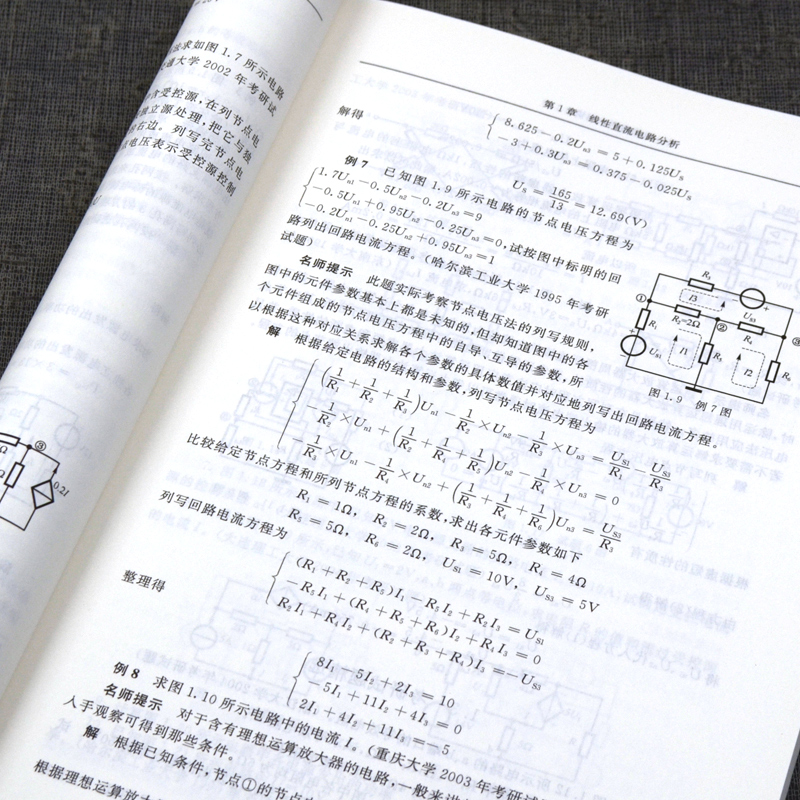 求如图1.7所示电路
通大学2002年考研试
含受控源，在列节点电
独立源处理，把它与独
右边。列写完节点电
电压表示受控源控制
③
0.2I
第1章 线性直流电路分析
8.625－0.2Uₙ₃＝5＋0.125Uₛ
－3＋0.3Uₙ₃＝0.375－0.025Uₛ
解得
Uₛ＝165/13＝12.69(V)
例7 已知图1.9所示电路的节点电压方程为
1.7Uₙ₁－0.5Uₙ₂－0.2Uₙ₃＝9
－0.5Uₙ₁＋0.95Uₙ₂－0.25Uₙ₃＝0，试按图中标明的回
－0.2Uₙ₁－0.25Uₙ₂＋0.95Uₙ₃＝1
路列出回路电流方程。（哈尔滨工业大学1995年考研
试题）
名师提示 此题实际考察节点电压法的列写规则，
图中的元件参数基本上都是未知的，但却知道图中的各
个元件组成的节点电压方程中的自导、互导的参数，所
以根据这种对应关系求解各个参数的具体数值并对应地列写出回路电流方程。
R₃
I3
U_S3
①
R₂=2Ω
②
R₄
③
R₁
U_S1
I1
R₅
I2
R₆
图1.9 例7图
解 根据给定电路的结构和参数，列写节点电压方程为
(1/R₁＋1/R₂＋1/R₃)Uₙ₁－1/R₂×Uₙ₂－1/R₃×Uₙ₃＝U_S1/R₁－U_S3/R₃
－1/R₂×Uₙ₁＋(1/R₂＋1/R₄＋1/R₅)Uₙ₂－1/R₄×Uₙ₃＝0
－1/R₃×Uₙ₁－1/R₄×Uₙ₂＋(1/R₃＋1/R₄＋1/R₆)Uₙ₃＝U_S3/R₃
比较给定节点方程和所列节点方程的系数，求出各元件参数如下
R₁＝1Ω，R₂＝2Ω，R₃＝5Ω，R₄＝4Ω
R₅＝5Ω，R₆＝2Ω，U_S1＝10V，U_S3＝5V
列写回路电流方程为
(R₁＋R₂＋R₅)I₁－R₅I₂＋R₂I₃＝U_S1
－R₅I₁＋(R₄＋R₅＋R₆)I₂＋R₄I₃＝0
R₂I₁＋R₄I₂＋(R₂＋R₃＋R₄)I₃＝－U_S3
整理得
8I₁－5I₂＋2I₃＝10
－5I₁＋11I₂＋4I₃＝0
2I₁＋4I₂＋11I₃＝－5
例8 求图1.10所示电路中的电流I。（重庆大学2003年考研试
名师提示 对于含有理想运算放大器的电路，一般来
入手观察可得到那些条件。
解 根据已知条件，节点①的节点
根据理想运算放大